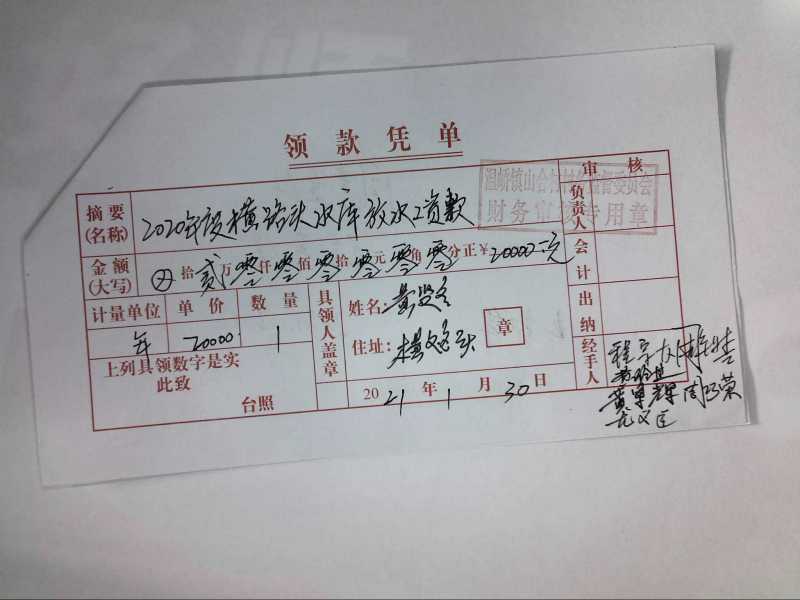 领款凭单
审核
温峤镇山会村村务监督委员会
财务审核专用章
摘要(名称) 2020年度横路头水库放水工资款
负责人
金额(大写) 拾贰万零仟零佰零拾零元零角零分正¥20000元
会计
计量单位 单价 数量
年 20000 1
具领人盖章
姓名:黄
住址:横路头
章
出纳
上列具领数字是实
此致
台照
2021年1月30日
经手人